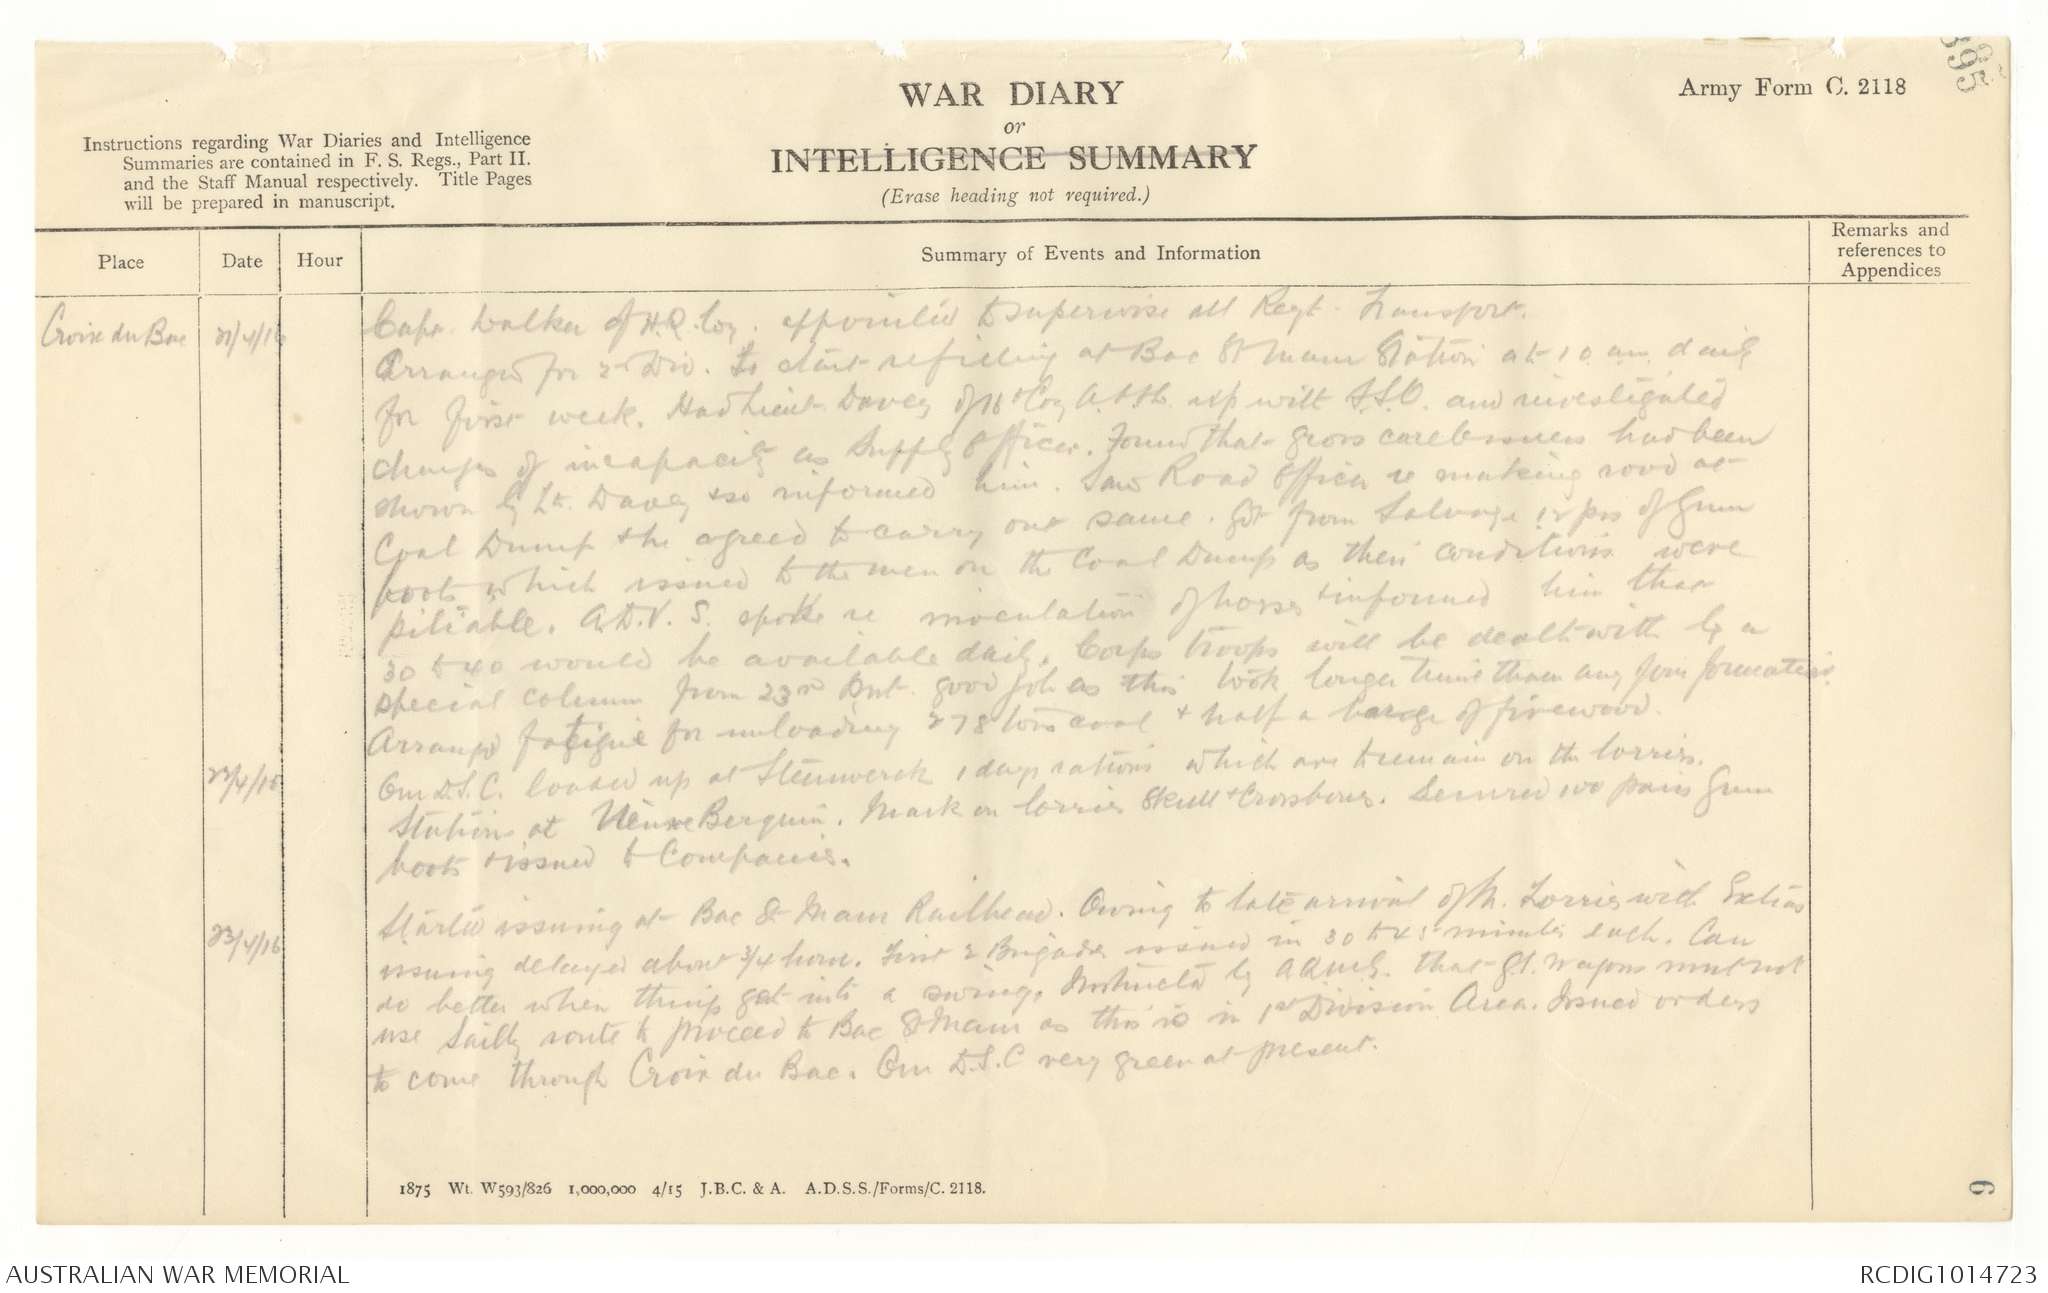 395
WAR DIARY
or
INTELLIGENCE SUMMARY
(Erase heading not required.)
Army Form C. 2118
Instructions regarding War Diaries and Intelligence
Summaries are contained in F. S. Regs., Part II.
and the Staff Manual respectively. Title Pages
will be prepared in manuscript.
Place
Date
Hour
Summary of Events and Information
Remarks and
references to
Appendices
Croix du Bac
21/4/16
Capt. Walker of H.Q. Coy. appointed to supervise all Regt. Transport.
Arranged for 2nd Div. to start refilling at Bac St Maur Station at 10 am daily
for first week. Had Lieut Davey of 16th Coy up with S.S.O. and investigated
charges of incapacity as Supply Officer. Found that gross carelessness had been
shown by Lt. Davey & so informed him. Saw Road Officer re making road at
Coal Dump & he agreed to carry out same. Got from Salvage 12 prs of Gum
boots which issued to the men on the Coal Dump as their conditions were
pitiable. A.D.V.S. spoke re inoculation of horses & informed him that
30 to 40 would be available daily. Corps troops will be dealt with by a
special column from 23rd inst. good job as this took longer time than any four formations.
Arranged fatigue for unloading 278 tons coal & half a barge of firewood.
22/4/16
Our D.S.C. loaded up at Steenwerck 1 days rations which are to remain on the lorries.
Stations at Neuve Berquin. Mark on lorries Skull & Crossbones. Secured 100 pairs Gum
boots & issued to Companies.
23/4/16
Started issuing at Bac St Maur Railhead. Owing to late arrival of M. Lorries with Extras
issuing delayed about 3/4 hour. First 2 Brigades issued in 30 to 45 minutes each. Can
do better when things get into a swing. Instructed by that G.S. Wagons must not
use Sailly route to proceed to Bac St Maur as this is in 1st Division Area. Issued orders
to come through Croix du Bac. Our D.S.C very green at present.
1875 Wt. W593/826 1,000,000 4/15 J.B.C. & A. A.D.S.S./Forms/C. 2118.
6
AUSTRALIAN WAR MEMORIAL
RCDIG1014723